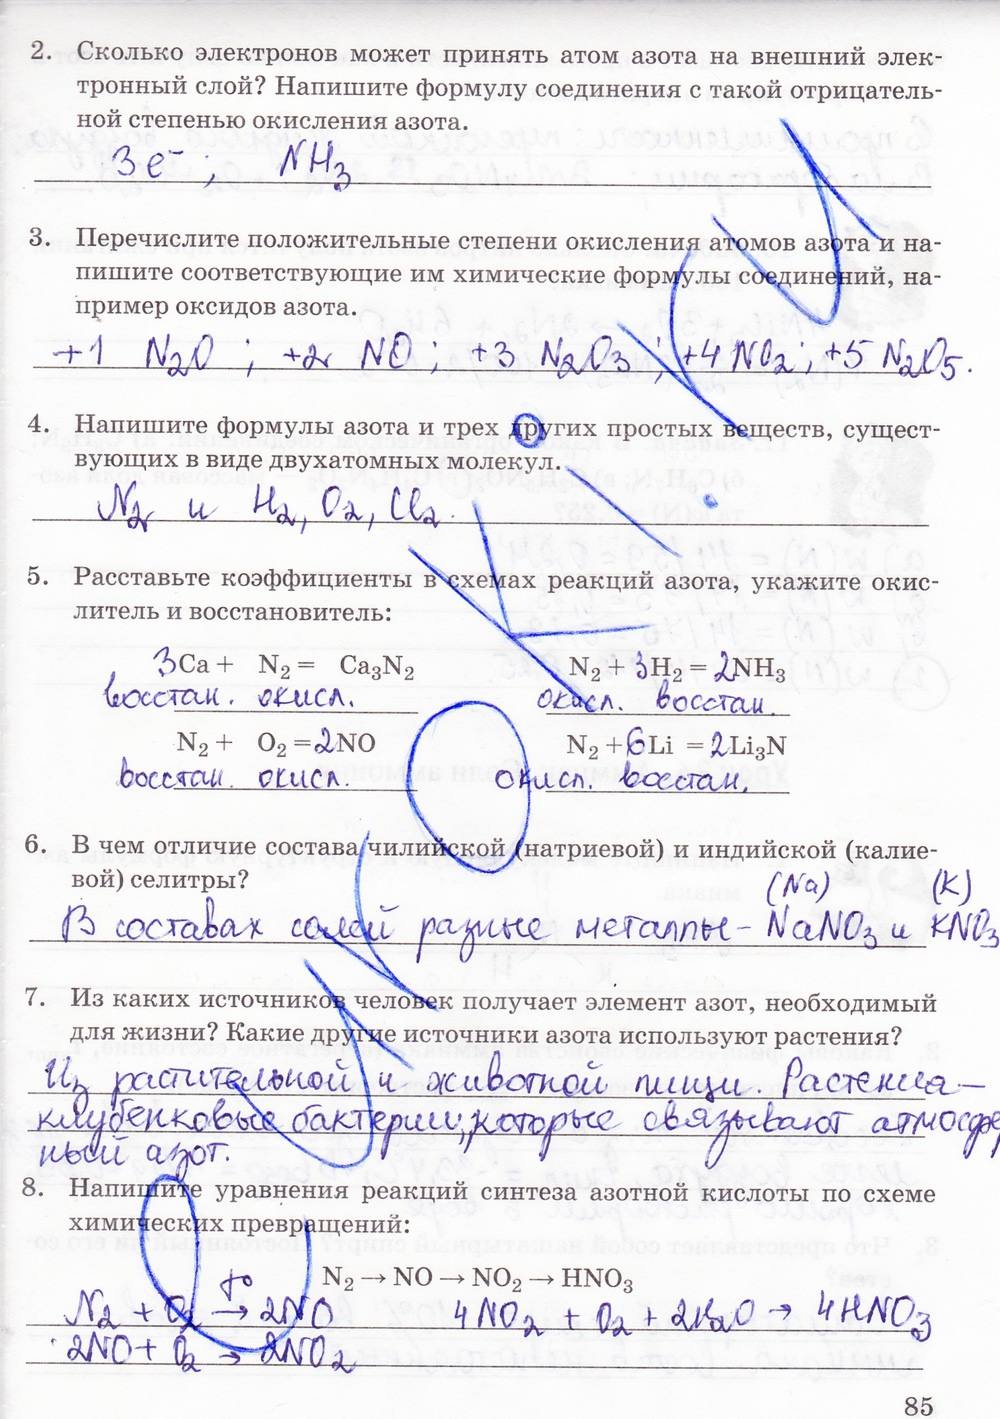 2. Сколько электронов может принять атом азота на внешний элек-
тронный слой? Напишите формулу соединения с такой отрицатель-
ной степенью окисления азота.
3e⁻; NH₃
3. Перечислите положительные степени окисления атомов азота и на-
пишите соответствующие им химические формулы соединений, на-
пример оксидов азота.
+1 N₂O ; +2 NO; +3 N₂O₃; +4 NO₂; +5 N₂O₅.
4. Напишите формулы азота и трех других простых веществ, сущест-
вующих в виде двухатомных молекул.
N₂ и H₂, O₂, Cl₂.
5. Расставьте коэффициенты в схемах реакций азота, укажите окис-
литель и восстановитель:
3Ca + N₂ = Ca₃N₂ N₂ + 3H₂ = 2NH₃
восстан. окисл. окисл. восстан.
N₂ + O₂ = 2NO N₂ + 6Li = 2Li₃N
восстан окисл. окисл. восстан.
6. В чем отличие состава чилийской (натриевой) и индийской (калие-
вой) селитры?
(Na) (K)
В составах солей разные металлы – NaNO₃ и KNO₃
7. Из каких источников человек получает элемент азот, необходимый
для жизни? Какие другие источники азота используют растения?
Из растительной и животной пищи. Растения –
клубенковые бактерии, которые связывают атмосфер
ный азот.
8. Напишите уравнения реакций синтеза азотной кислоты по схеме
химических превращений:
N₂ → NO → NO₂ → HNO₃
N₂ + O₂ →(t°) 2NO 4NO₂ + O₂ + 2H₂O → 4HNO₃
2NO + O₂ → 2NO₂
85
OUNOKI.RU